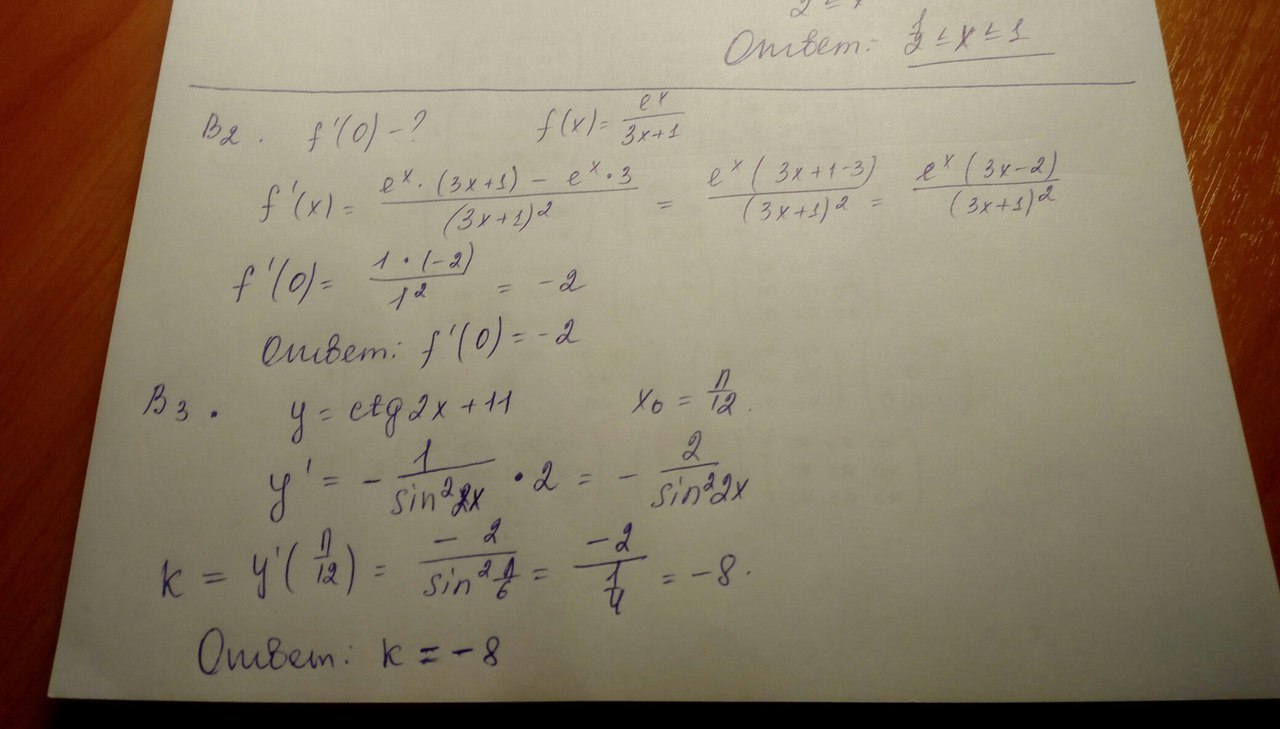 2 ≤ x
Ответ: 1/2 ≤ x ≤ 1
B2. f'(0) - ? f(x) = e^x/(3x+1)
f'(x) = (e^x · (3x+1) - e^x · 3)/(3x+1)^2 = e^x(3x+1-3)/(3x+1)^2 = e^x(3x-2)/(3x+1)^2
f'(0) = 1·(-2)/1^2 = -2
Ответ: f'(0) = -2
B3. y = ctg2x + 11 x₀ = π/12.
y' = - 1/sin^2 2x · 2 = - 2/sin^2 2x
k = y'(π/12) = -2/sin^2 π/6 = -2/(1/4) = -8.
Ответ: k = -8